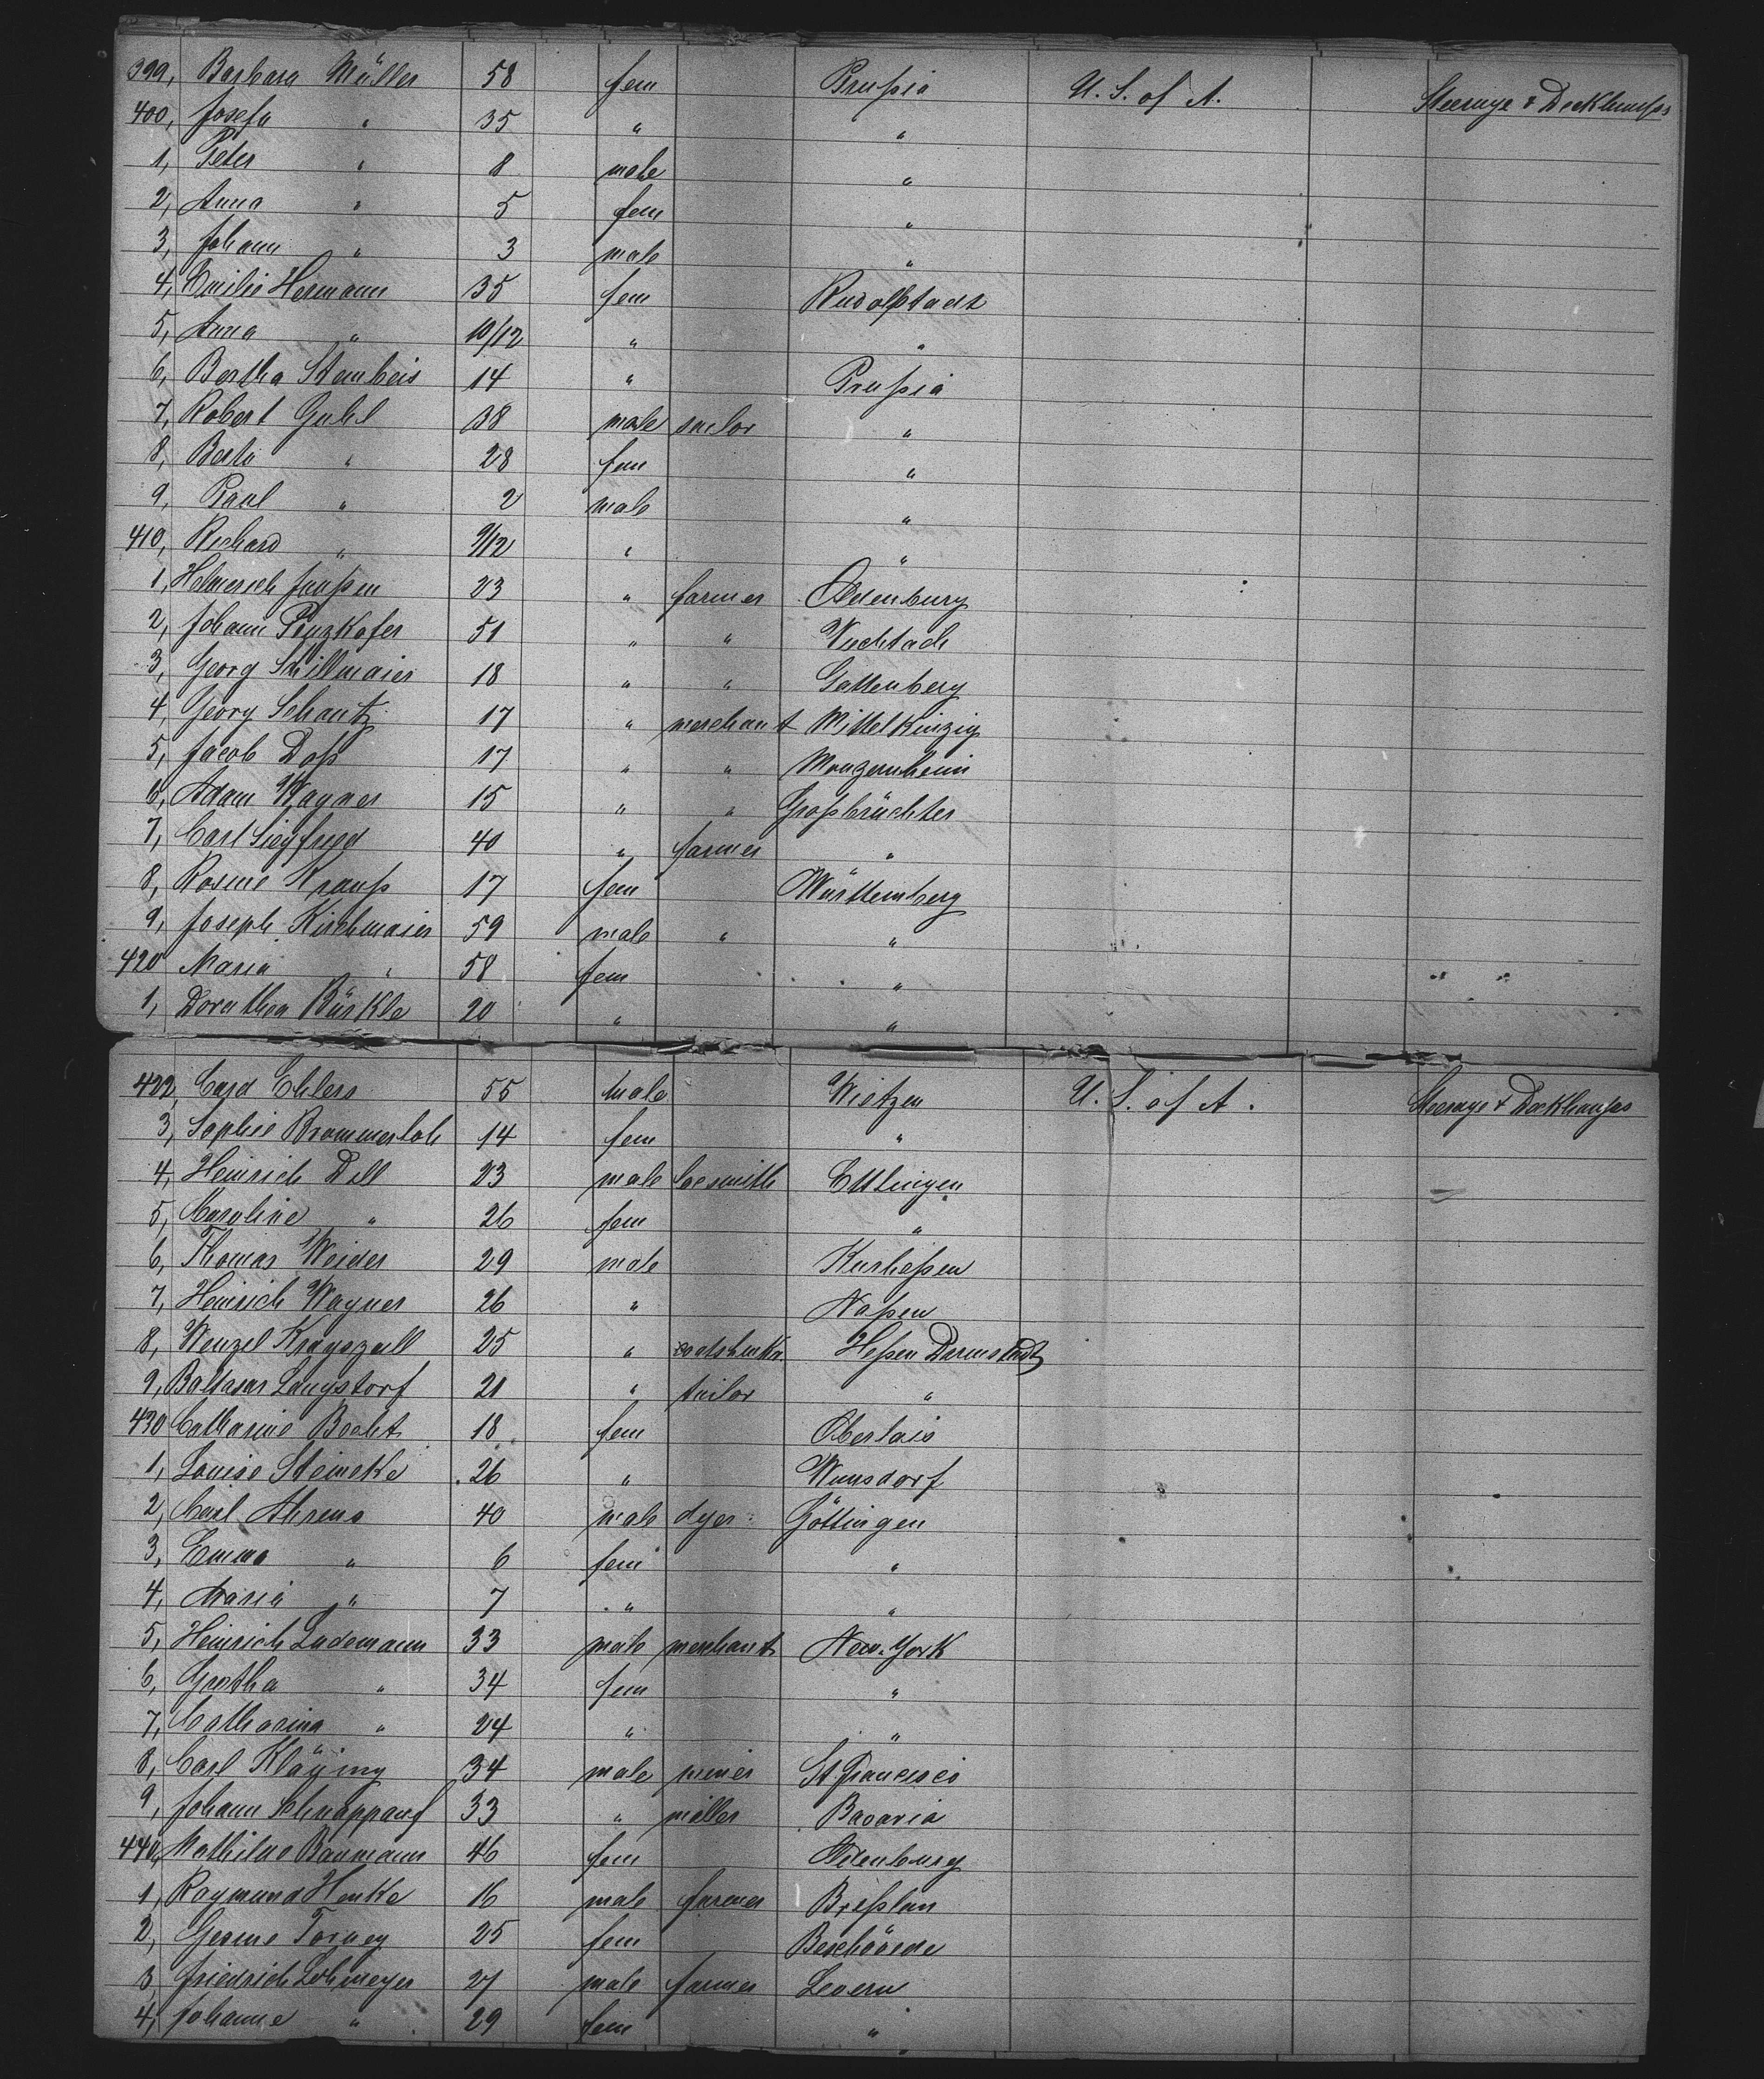 399, Barbara Müller 58 fem Prußia U. S. of A. Steerage & Deckhouses
400, Josefa " 35 " "
1, Peter " 8 male "
2, Anna " 5 fem "
3, Johann " 3 male "
4, Emilie Hermann 35 fem Rudolstadt
5, Anna " 10/12 " "
6, Bertha Stembeis 14 " Prußia
7, Robert Guhl 38 male sailor "
8, Berta " 28 fem "
9, Paul " 2 male "
410, Richard " 9/12 " "
1, Helmerich Janßen 23 " farmer Oldenburg
2, Johann Penzkofer 51 " " Viechtach
3, Georg Stillmaier 18 " " Gattenberg
4, Georg Schantz 17 " merchant Mittelkinzig
5, Jacob Doß 17 " " Monzernheim
6, Adam Wagner 15 " " Großbrüchter
7, Carl Siegfried 40 " farmer "
8, Rosine Krauß 17 fem Württemberg
9, Joseph Kirchmaier 59 male " "
420 Maria " 58 fem " " "
1, Dorothea Bürkle 20 " "
422, Cord Ehlers 55 male Wietzen U. S. of A. Steerage & Deckhouses
3, Sophie Brommerloh 14 fem "
4, Heinrich Dell 23 male locsmith Ettlingen
5, Caroline " 26 fem "
6, Thomas Weider 29 male Kurheßen
7, Heinrich Wagner 26 " Naßau
8, Wenzel 25 " Heßen Darmstadt
9, Baltasar Langstorf 21 " tailor "
430 Catharine Becht 18 fem Oberlais
1, Louise Steineke 26 " Wunsdorf
2, Carl Ahrens 40 male dyer Göttingen
3, Emma " 6 fem "
4, Maria " 7 " "
5, Heinrich Lademann 33 male merchant New-York
6, Gretha " 34 fem "
7, Catharina " 24 " "
8, Carl Kläying 34 male miner St. Francisco
9, Johann Schnappauf 33 " miller Bavaria
440, Mathilde Baumann 46 fem Oldenburg
1, Raymund Henke 16 male farmer Breßlau
2, Gesine Torney 25 fem
3, Friedrich Lohmeyer 27 male farmer Levern
4, Johanne " 29 fem "